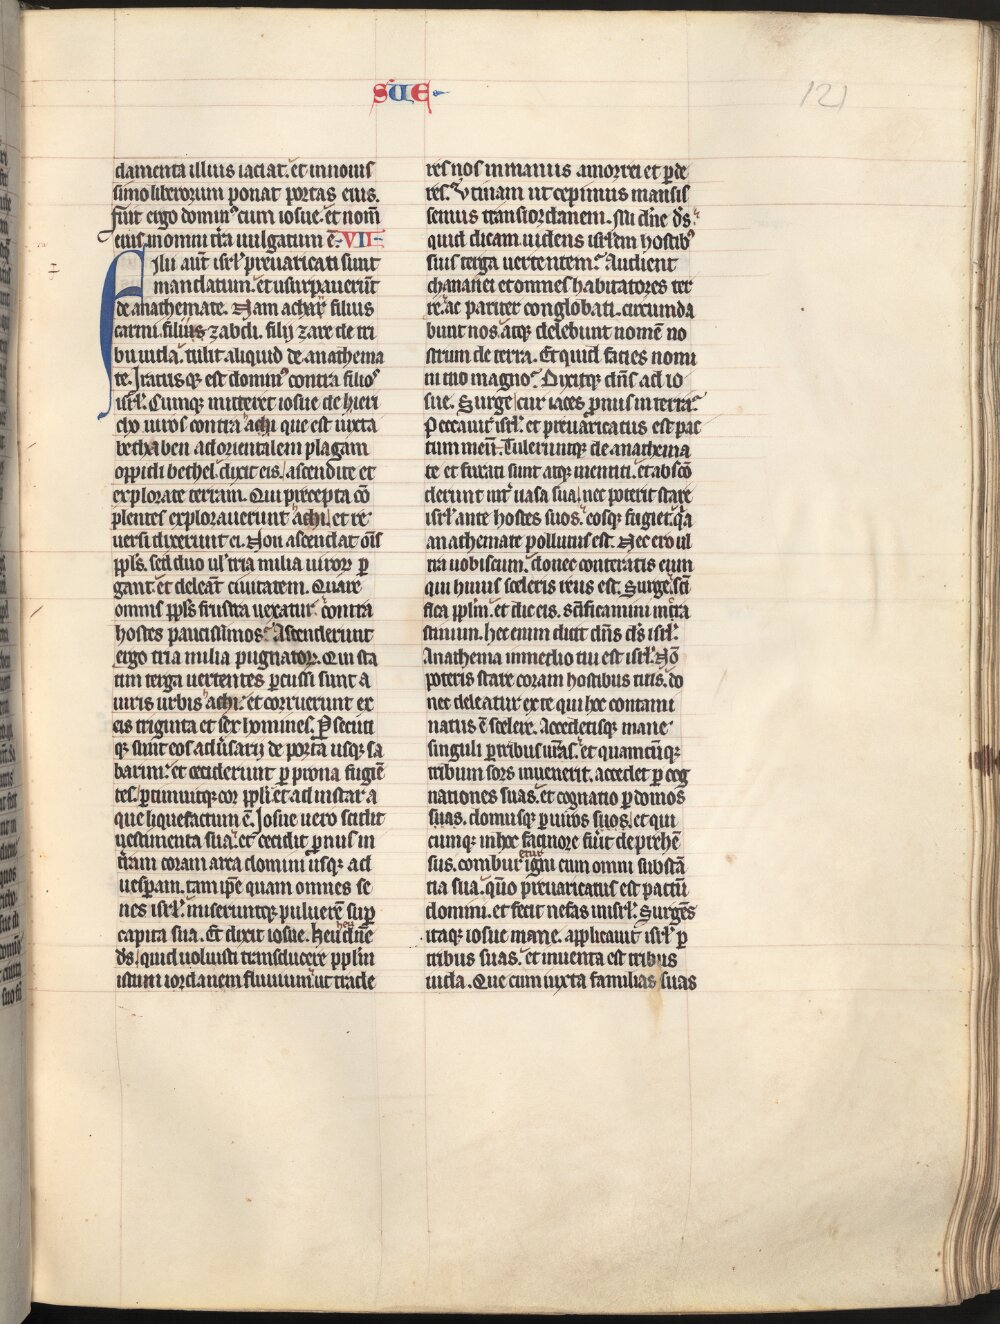 sUE
121
damenta illius iaciat. et in nouis
simo liberorum ponat portas eius.
fuit ergo domin᷒ cum iosue. et nom̄
eius in omni t̄ra uulgatum ē. VII
Filii aut̄ isrl̄ preuaricati sunt
mandatum. et usurpauerūt
de anathemate. Nam achar filius
carmi. filius zabdi. filij zare de tri
bu iuda. tulit aliquid de anathema
te. Iratus qꝫ est domin᷒ contra filio᷒
isrl̄. Cumqꝫ mitteret iosue de hieri
cho uiros contra achi que est iuxta
bethaben ad orientalem plagam
oppidi bethel. dixit eis. ascendite et
explorate terram. Qui precepta cō
plentes explorauerunt achi. et re
uersi dixerunt ei. Non ascendat om̄s
ppl̄s. sed duo ul̄ tria milia uiroꝝ ꝑ
gant et deleāt ciuitatem. Quare
omnis ppl̄s frustra uexatur contra
hostes paucissimos? Ascenderunt
ergo tria milia pugnatoꝝ. Qui sta
tim terga uertentes ꝑcussi sunt a
uiris urbis achi. et corruerunt ex
eis triginta et sex homines. Ꝑsecuti
qꝫ sunt eos adūsarij de porta usqꝫ sa
barim. et ceciderunt ꝑ prona fugiē
tes. ꝑtimuitqꝫ cor ppl̄i et ad instar a
que liquefactum ē. Iosue uero scidit
uestimenta sua. et cecidit ꝓnus in
t̄ram coram arca domini usqꝫ ad
uesꝑam. tam ip̄e quam omnes se
nes isrl̄. miseruntqꝫ puluerē suꝑ
capita sua. Et dixit iosue. heu heu dn̄e
ds̄. quid uoluisti transducere ppl̄m
istum iordanem fluuium. ut trade
res nos in manus amorrei et ꝑde
res. Utinam ut cepimus mansis
semus trans iordanem. Mi dn̄e ds̄
quid dicam uidens isrl̄em hostib᷒
suis terga uertentem? Audient
chananei et omnes habitatores ter
re. ac pariter conglobati. circunda
bunt nos. atqꝫ delebunt nomē no
strum de terra. Et quid facies nomi
ni tuo magno? Dixitqꝫ dn̄s ad io
sue. Surge cur iaces ꝓnus in terra?
Peccauit isrl̄. et preuaricatus est pac
tum meū. Tuleruntqꝫ de anathema
te et furati sunt atqꝫ mentiti. et abscō
derunt int̄ uasa sua. nec poterit stare
isrl̄ ante hostes suos. eosqꝫ fugiet. q̄a
anathemate pollutus est. Nec ero ul
tra uobiscum. donec conteratis eum
qui huius sceleris reus est. Surge. sc̄i
fica ppl̄m. et dic eis. sc̄ificamini in cra
stinum. hec enim dicit dn̄s ds̄ isrl̄.
Anathema in medio tui est isrl̄. Nō
poteris stare coram hostibus tuis. do
nec deleatur ex te qui hoc contami
natus ē scelere. Accedetisqꝫ mane
singuli ꝑ tribus ur̄as. et quamcūqꝫ
tribum sors inuenerit. accedet ꝑ cog
nationes suas. et cognatio ꝑ domos
suas. domusqꝫ ꝑ uiros suos. et qui
cumqꝫ in hoc facinore fūit deprehē
sus. combur etur igni cum omni substā
tia sua. qūo preuaricatus est pactū
domini. et fecit nefas in isrl̄. Surgēs
itaqꝫ iosue mane. applicauit isrl̄ ꝑ
tribus suas. et inuenta est tribus
iuda. Que cum iuxta familias suas